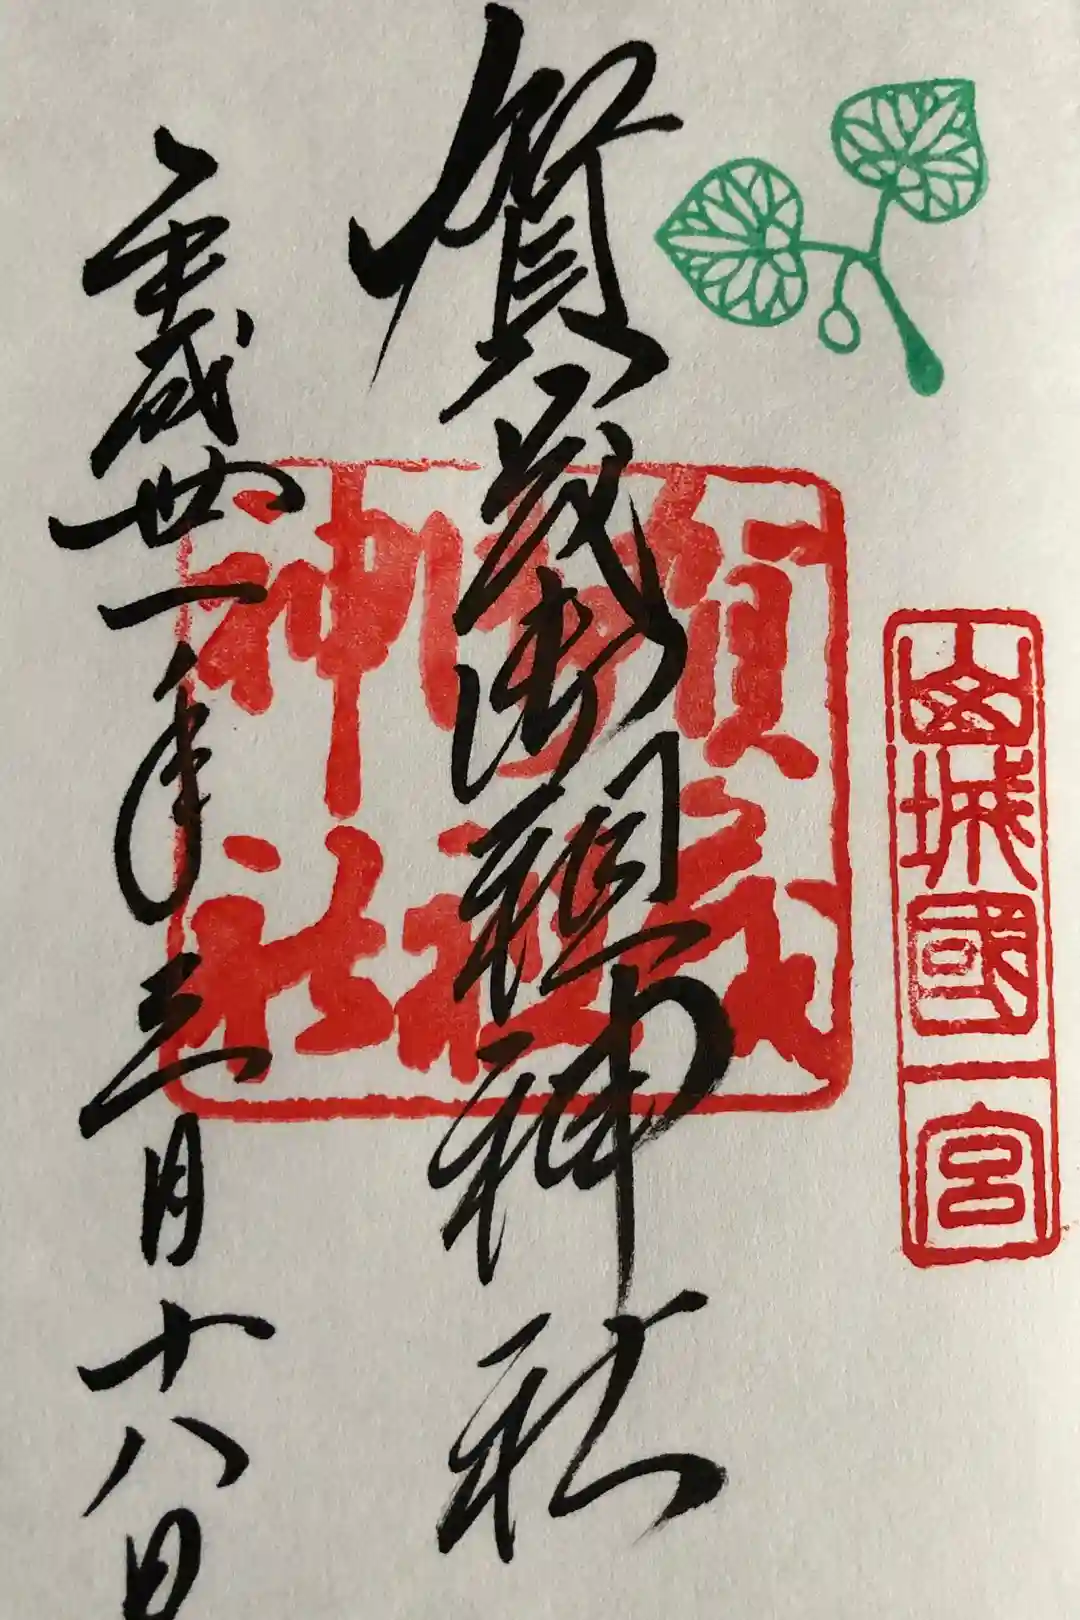 山城國一宮
賀茂御祖神社
賀茂
御祖
神社
平成丗一年三月十八日